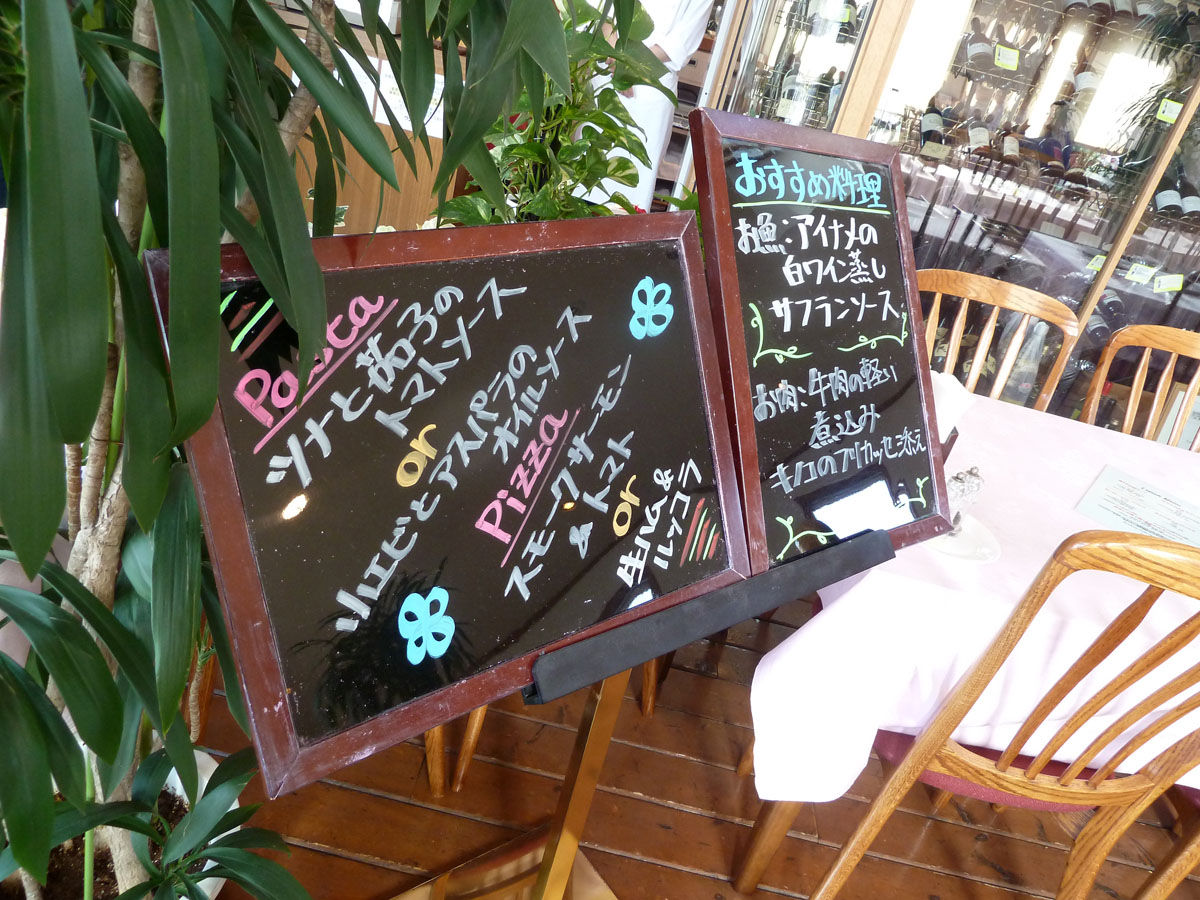 Pasta
ツナと茄子の
トマトソース
or
小エビとアスパラの
オイルソース
Pizza
スモークサーモン
&トマト
or
生ハム&
ルッコラ
おすすめ料理
お魚:アイナメの
白ワイン蒸し
サフランソース
お肉:牛肉の軽い
煮込み
キノコのフリカッセ添え